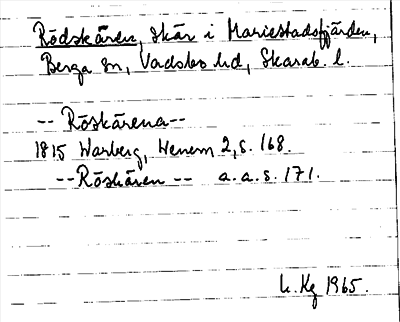 Rödskären, skär i Mariestadsfjärden,
Berga sn, Vadsbo hd, Skarab. l.
-- Röskärena --
1815 Warberg, Wenern 2, s. 168.
-- Röskären -- a.a.s. 171.
L. Kg 1965.